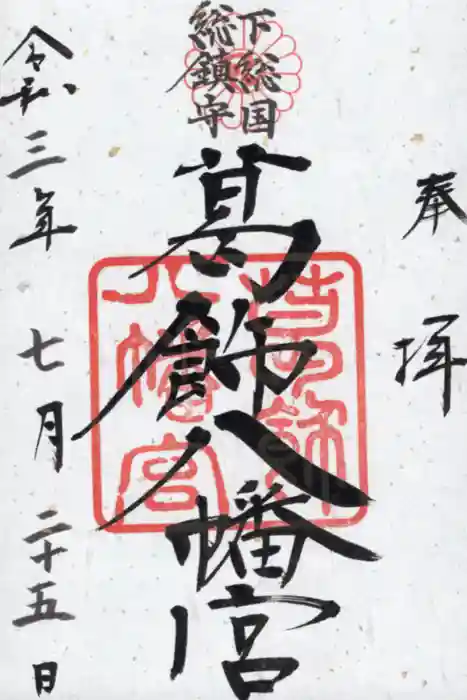 奉拝
下総国
総鎮守
葛飾八幡宮
葛飾
八幡宮
令和三年七月二十五日